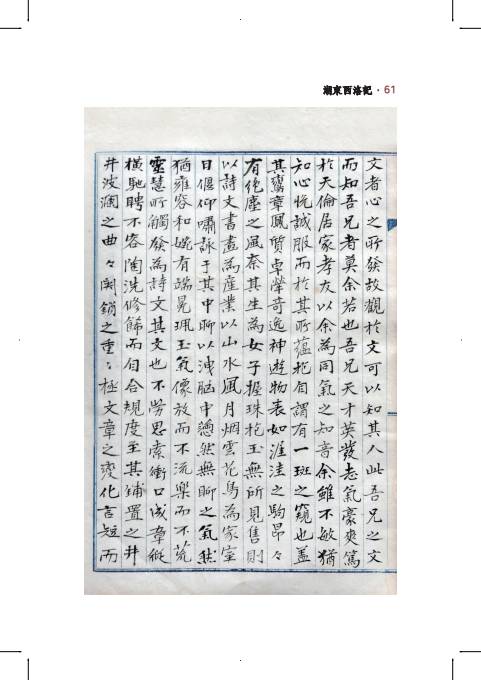 湖東西洛記 · 61
文者心之所發故觀於文可以知其人此吾兄之文
而知吾兄者莫余若也吾兄天才英發志氣豪爽篤
於天倫居家孝友以余為同氣之知音余雖不敏猶
知心悅誠服而於其所蘊抱自謂有一斑之窺也盖
其鸞章鳳質卓犖奇逸神遊物表如渥洼之駒昂々
有絶塵之風奈其生為女子握珠抱玉無所見售則
以詩文書畫為産業以山水風月烟雲花鳥為家室
日偃仰嘯詠于其中聊以洩腦中憊然無聊之氣然
猶雍容和婉有端冕珮玉氣像放而不流樂而不荒
靈慧所觸發為詩文其文也不勞思索衝口成章縱
橫馳騁不容陶洗修餙而自合規度至其鋪置之井
井波瀾之曲々関鎖之重々極文章之變化言短而